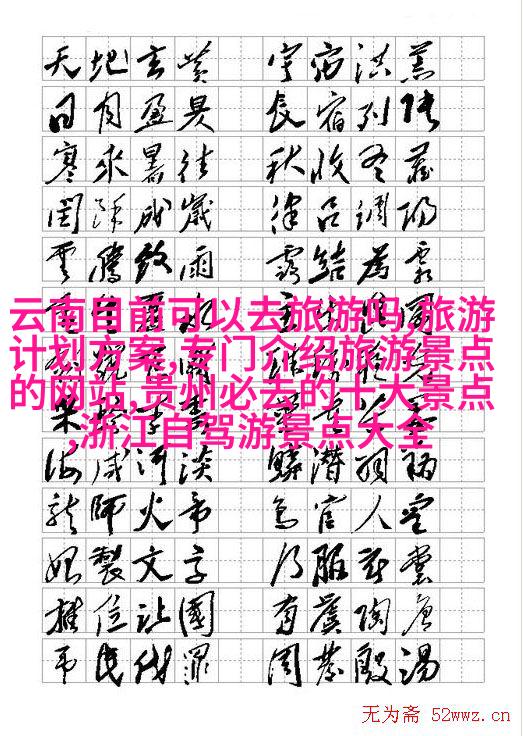 天地玄黄 宇宙洪荒
日月盈昃 辰宿列張
寒來暑往 秋收冬藏
閏餘成歲 律吕調陽
雲騰致雨 露結為霜
云南目前可以去旅游吗,旅游
计划方案,专门介绍旅游景点
的网站,贵州必去的十大景点
,浙江自驾游景点大全
海咸河淡 鱗潛羽翔
龍師火帝 鳥官人皇
始製文字 乃服衣裳
推位讓國 有虞陶唐
弔民伐罪 周發殷湯
无为斋 52wwz.cn